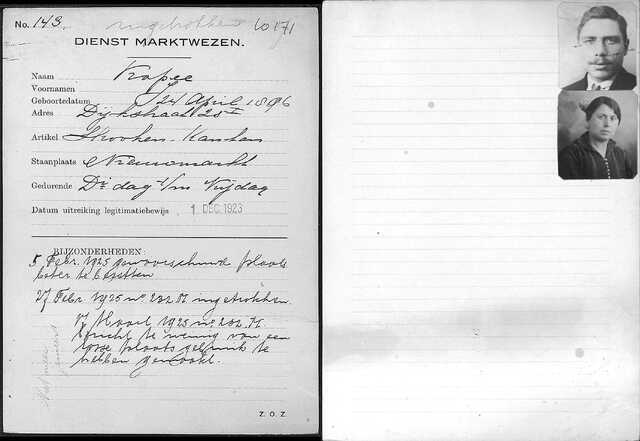 No. 143. ingetrokken 10171
DIENST MARKTWEZEN.
Naam Kopee
Voornamen
Geboortedatum 24 April 1896
Adres Dijkstraat 25 I
Artikel
Staanplaats Nieuwmarkt
Gedurende Di dag t/m Vrijdag
Datum uitreiking legitimatiebewijs . 1 DEC. 1923
BIJZONDERHEDEN:
5 Febr. 1925 gewaarschuwd plaats
beter te bezetten
27 Febr. 1925 no 232 M ingetrokken.
17 Maart 1925 no 202. M.
te weinig van een
plaats gebruik te
hebben gemaakt.
Z. O. Z.